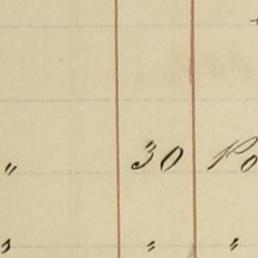 " 30 Po
" " "